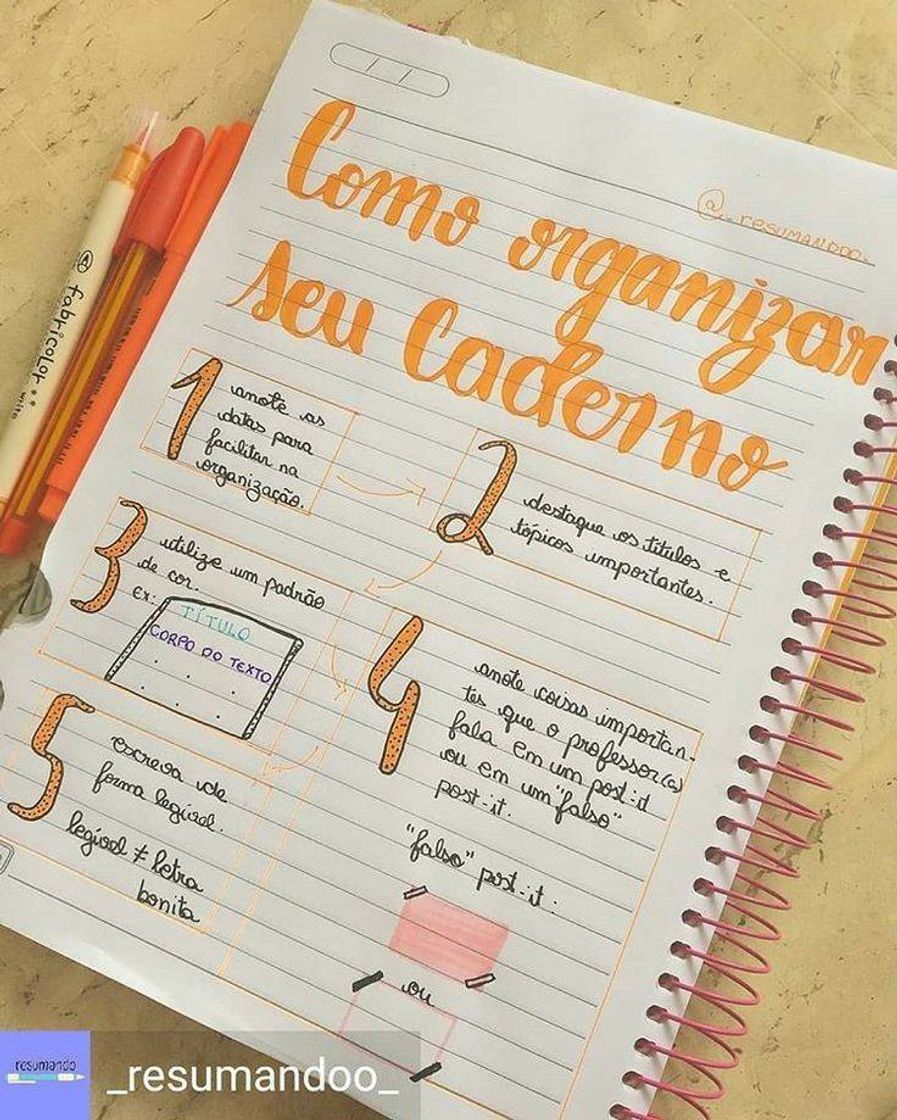 @_resumandoo_
Como organizar
seu Caderno
1
anote as
datas para
facilitar na
organização.
2
destaque os títulos e
tópicos importantes.
3
utilize um padrão
de cor.
Ex:
TÍTULO
CORPO DO TEXTO
4
anote coisas importan-
tes que o professor(a)
fala em um post-it
ou em um "falso"
post-it.
"falso" post-it:
ou
5
escreva de
forma legível.
legível ≠ letra
bonita
fabricolor
write
resumando
_resumandoo_